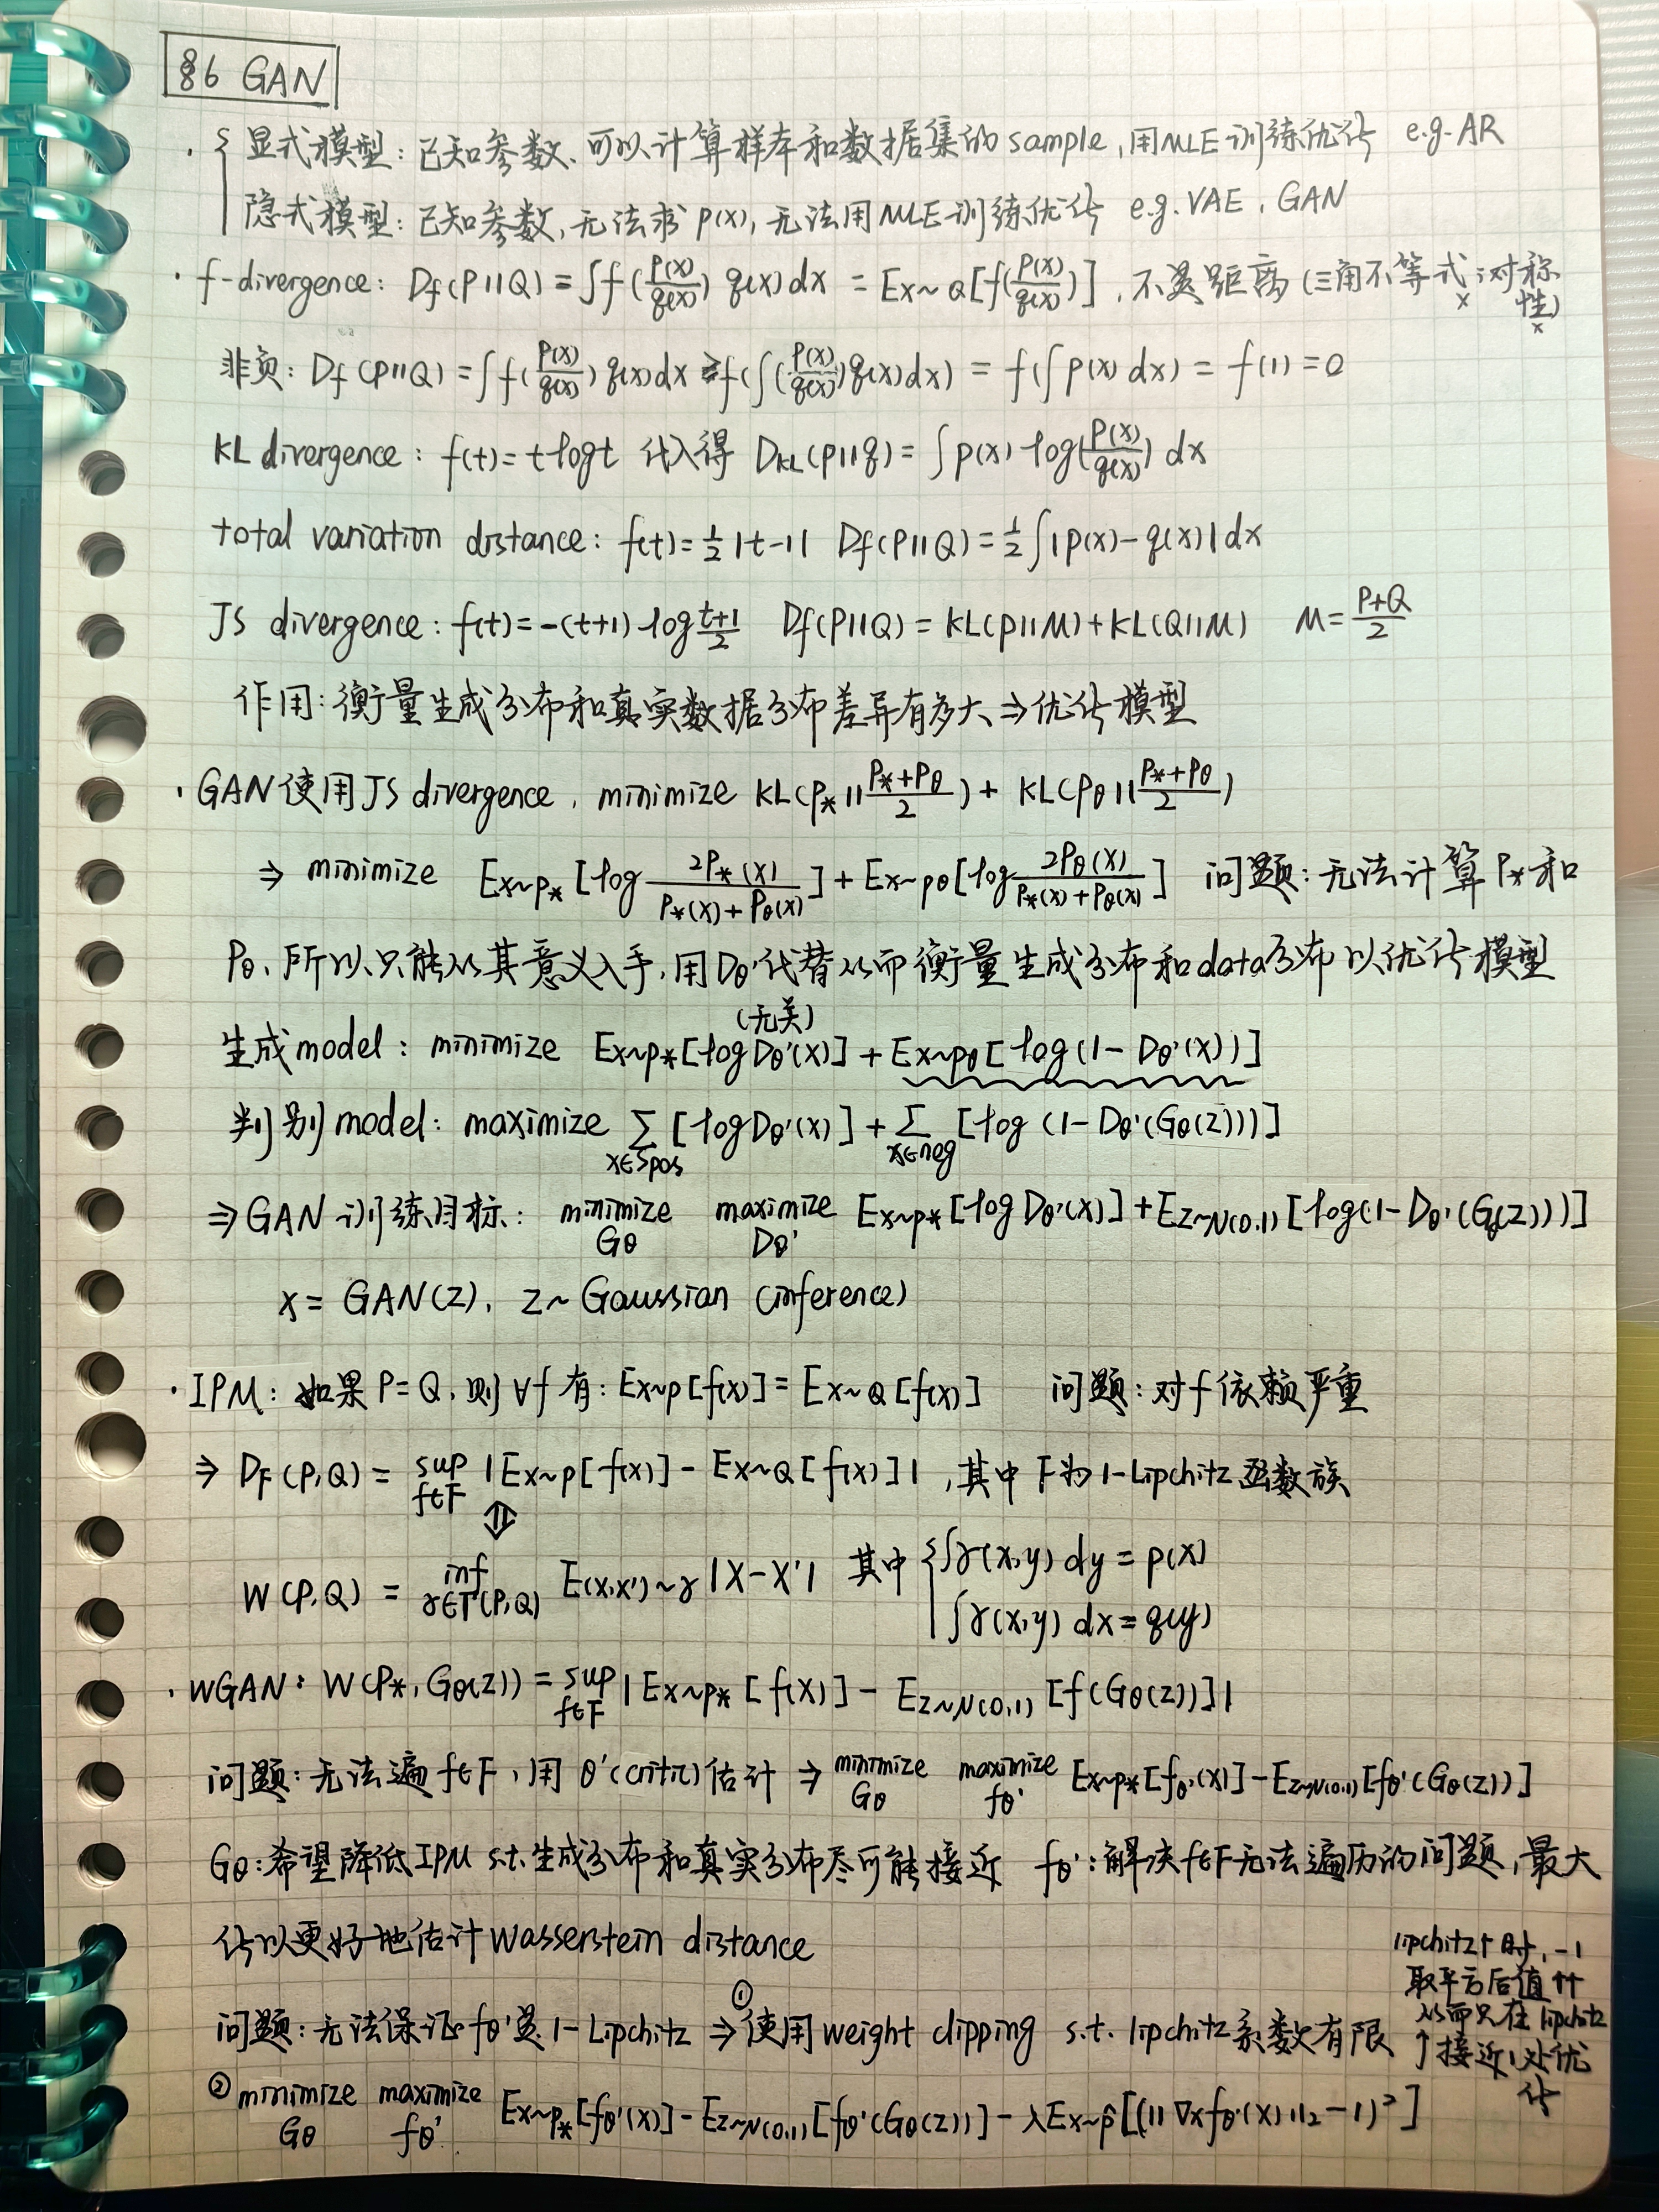 §6 GAN
· { 显式模型：已知参数、可以计算样本和数据集的sample，用MLE训练优化 e.g. AR
隐式模型：已知参数，无法求p(x)，无法用MLE训练优化 e.g. VAE、GAN
· f-divergence: Df(P||Q) = ∫f(p(x)/q(x)) q(x)dx = Ex~Q[f(p(x)/q(x))]，不是距离 (三角不等式×；对称性×)
非负：Df(P||Q) = ∫f(p(x)/q(x)) q(x)dx ≥ f(∫(p(x)/q(x))q(x)dx) = f(∫p(x)dx) = f(1) = 0
KL divergence: f(t) = t log t 代入得 DKL(p||q) = ∫p(x) log(p(x)/q(x)) dx
total variation distance: f(t) = ½|t-1| Df(P||Q) = ½∫|p(x)-q(x)|dx
JS divergence: f(t) = -(t+1) log (t+1)/2 Df(P||Q) = KL(P||M) + KL(Q||M) M = (P+Q)/2
作用：衡量生成分布和真实数据分布差异有多大 ⇒ 优化模型
· GAN使用JS divergence，minimize KL(P*||(P*+Pθ)/2) + KL(Pθ||(P*+Pθ)/2)
⇒ minimize Ex~p*[log 2P*(x)/(P*(x)+Pθ(x))] + Ex~pθ[log 2Pθ(x)/(P*(x)+Pθ(x))] 问题：无法计算P*和
Pθ，所以只能从其意义入手，用Dθ'代替从而衡量生成分布和data分布以优化模型
(无关)
生成model: minimize Ex~p*[log Dθ'(x)] + Ex~pθ[log(1-Dθ'(x))]
判别model: maximize Σx∈Spos [log Dθ'(x)] + Σx∈neg [log (1-Dθ'(Gθ(z)))]
⇒ GAN训练目标： minimize Gθ maximize Dθ' Ex~p*[log Dθ'(x)] + Ez~N(0,1)[log(1-Dθ'(Gθ(z)))]
x = GAN(z)，z ~ Gaussian (inference)
· IPM：如果P=Q，则∀f有：Ex~p[f(x)] = Ex~Q[f(x)] 问题：对f依赖严重
⇒ DF(P,Q) = sup f∈F |Ex~p[f(x)] - Ex~Q[f(x)]|，其中F为1-Lipchitz函数族
⇕
W(P,Q) = inf γ∈Γ(P,Q) E(x,x')~γ |X-X'| 其中 { ∫γ(x,y) dy = p(x)
∫γ(x,y) dx = q(y)
· WGAN: W(P*, Gθ(z)) = sup f∈F |Ex~p*[f(x)] - Ez~N(0,1)[f(Gθ(z))]|
问题：无法遍f∈F，用θ'(critic)估计 ⇒ minimize Gθ maximize fθ' Ex~p*[fθ'(x)] - Ez~N(0,1)[fθ'(Gθ(z))]
Gθ：希望降低IPM s.t.生成分布和真实分布尽可能接近 fθ'：解决f∈F无法遍历的问题，最大
化以更好地估计Wasserstein distance
问题：无法保证fθ'是1-Lipchitz ⇒ ①使用weight clipping s.t. lipchitz系数有限
lipchitz↑时，-1
取平方后值↑↑
从而只在lipchitz
↑接近1处优
化
② minimize Gθ maximize fθ' Ex~p*[fθ'(x)] - Ez~N(0,1)[fθ'(Gθ(z))] - λEx~p̂[(||∇xfθ'(x)||₂-1)²]